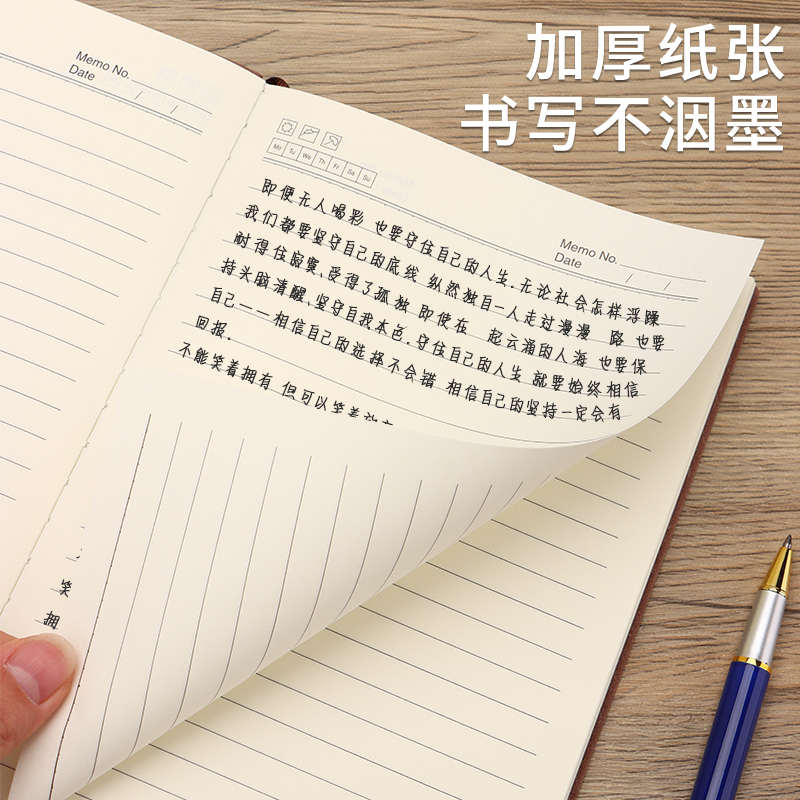 加厚纸张
书写不洇墨
Memo No.
Date / /
Mo Tu We Th Fr Sa Su
Memo No.
Date / /
即便无人喝彩 也要守住自己的人生.无论社会怎样浮躁
我们都要坚守自己的底线 纵然独自一人走过漫漫 路 也要
耐得住寂寞,受得了孤独 即便在 起云涌的人海 也要保
持头脑清醒,坚守自我本色.守住自己的人生 就要始终相信
自己——相信自己的选择不会错 相信自己的坚持一定会有
回报.
不能笑着拥有 但可以笑着
笑
拥